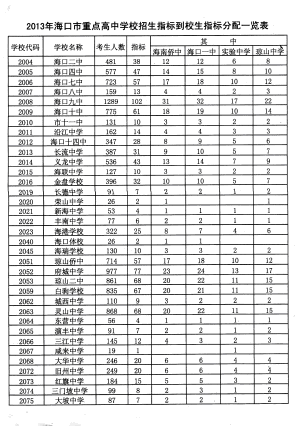 2013年海口市重点高中学校招生指标到校生指标分配一览表
学校代码 学校名称 考生人数 指标 其 中
海南侨中 海口一中 实验中学 琼山中学
2004 海口二中 481 38 12 12 6 8
2005 海口四中 577 47 14 15 8 10
2006 海口七中 723 57 17 18 10 12
2008 海口八中 159 13 4 4 2 3
2009 海口九中 1289 102 31 32 17 22
2010 海口十中 775 61 18 19 10 14
2010 市十一中 131 10 3 3 2 2
2011 沿江中学 162 14 4 4 3 3
2012 海口十四中 347 28 8 9 5 6
2013 长流中学 387 31 9 10 5 7
2014 义龙中学 536 43 13 14 7 9
2015 海联中学 127 10 3 3 2 2
2016 金盘学校 396 32 10 10 5 7
2019 长德中学 91 7 2 2 1 2
2020 荣山中学 26 2 1 1
2021 新海中学 53 4 1 1 1 1
2022 丰南中学 77 6 2 2 1 1
2023 海港学校 322 25 8 7 4 6
2040 海口体校 26 2 1 1
2045 海瑞学校 130 10 3 3 2 2
2051 琼山侨中 714 57 17 18 10 12
2052 府城中学 977 77 23 24 13 17
2053 琼山二中 861 68 20 22 11 15
2056 白驹学校 835 67 20 21 11 15
2062 城西中学 110 9 3 2 2 2
2063 灵山中学 868 68 20 22 11 15
2064 东营中学 56 4 1 1 1 1
2065 演丰中学 91 7 2 2 1 2
2066 三江中学 145 12 4 3 2 3
2067 咸来中学 19 1 1
2068 大华中学 246 20 6 6 4 4
2072 旧州中学 249 20 6 6 4 4
2073 红旗中学 184 15 5 5 3 2
2074 三门坡中学 99 8 2 3 1 2
2075 大坡中学 87 7 2 2 1 2